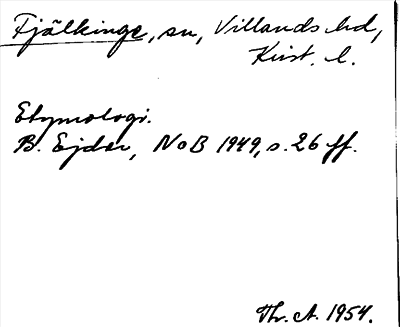 Fjälkinge, sn, Villands hd,
Krist. l.
Etymologi.
B. Ejder, NoB 1949, s. 26 ff.
Th. A. 1954.